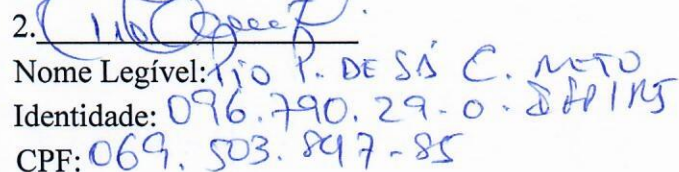 2.
Nome Legível: Pio P. DE SÁ C. NETO
Identidade: 096.790.29-0
CPF: 069.503.847-85